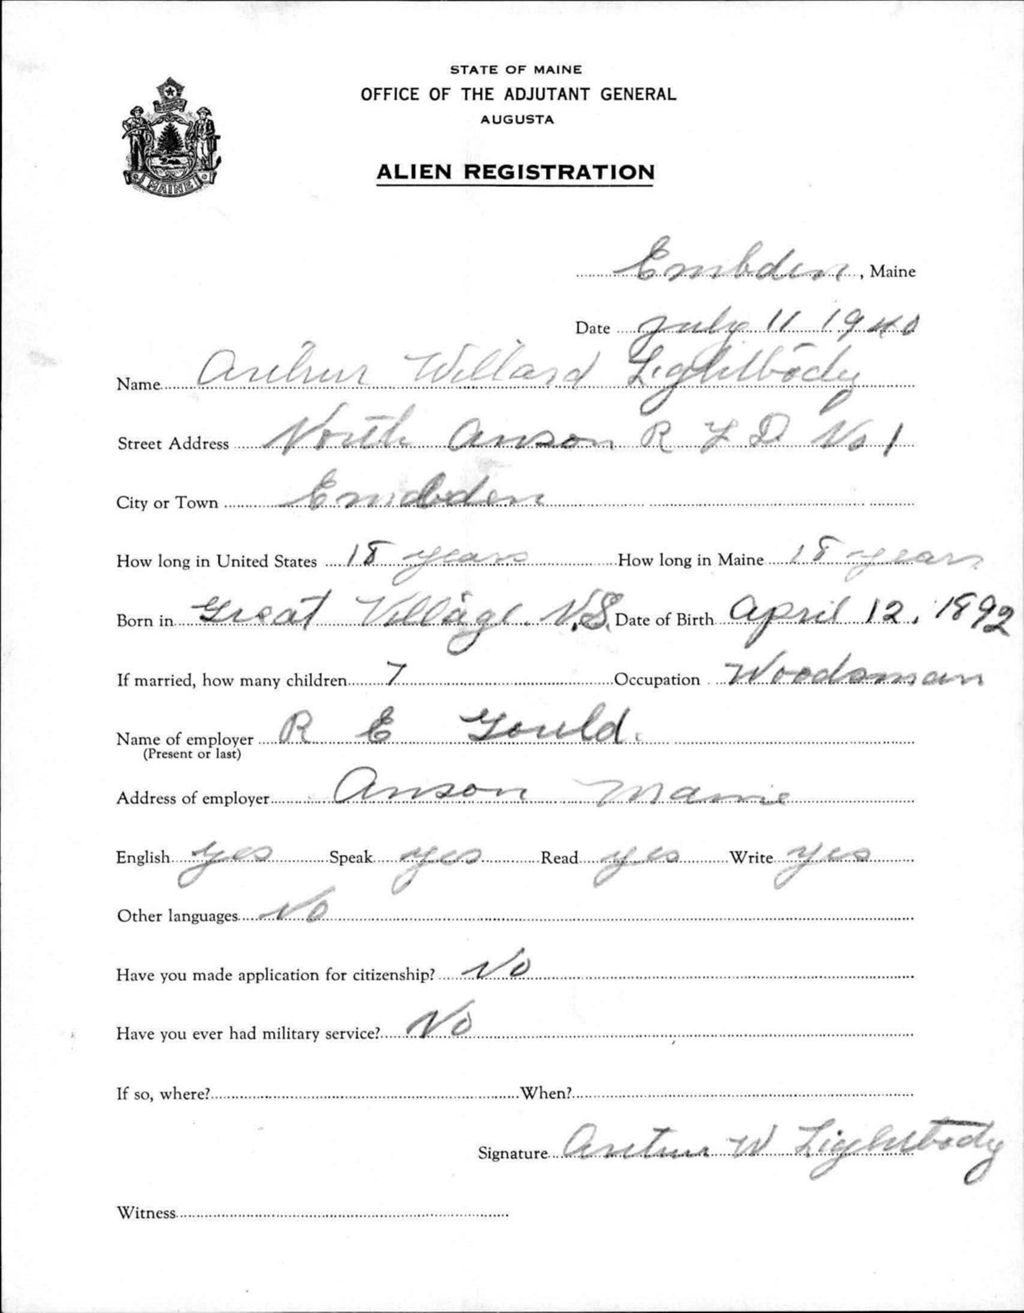 STATE OF MAINE
OFFICE OF THE ADJUTANT GENERAL
AUGUSTA
ALIEN REGISTRATION
MAINE
Embden, Maine
Date July 11 1940
Name Arthur Willard Lightbody
Street Address North Anson R F D No 1
City or Town Embden
How long in United States 18 years How long in Maine 18 years
Born in Great Village N.S. Date of Birth April 12, 1892
If married, how many children 7 Occupation Woodsman
Name of employer R E Gould.
(Present or last)
Address of employer Anson Maine
English yes Speak yes Read yes Write yes
Other languages No
Have you made application for citizenship? No
Have you ever had military service? No
If so, where? When?
Signature Arthur W Lightbody
Witness